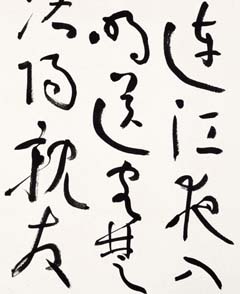 连江夜入
明送客楚
洛阳亲友